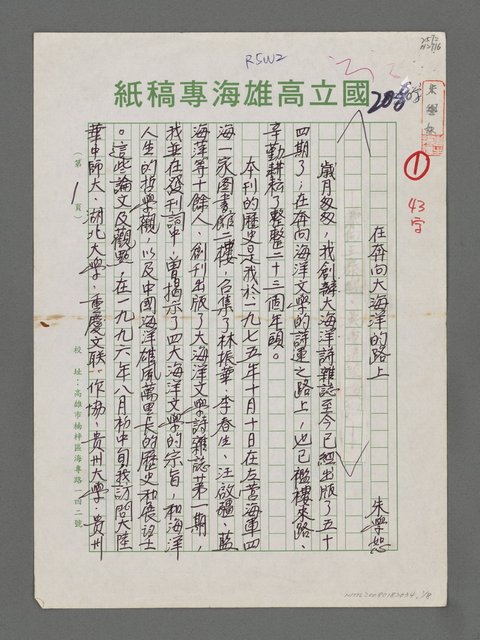 R5W2
國立高雄海專稿紙
208
①
43字
在奔向大海洋的路上
朱學恕
歲月匆匆，我創辦大海洋詩雜誌至今已經出版了五十
四期了；在奔向海洋文學的詩運之路上，也已襤褸來路、
辛勤耕耘了整整二十三個年頭。
本刊的歷史是我於一九七五年十月十日在左營海軍四
海一家圖書館二樓，召集了林振華、李春生、汪啟疆、藍
海萍等十餘人，創刊出版了大海洋文學詩雜誌第一期，
我並在發刊詞中，曾揭示了四大海洋文學的宗旨，和海洋
人生的哲學觀，以及中國海洋雄風萬里長的歷史和展望
。這些論文及觀點，在一九九六年八月杪中旬我訪問大陸
華中師大、湖北大學、重慶文聯、作協、貴州大學、貴州
（第1頁）
校址：高雄市楠梓區海專路一四二號